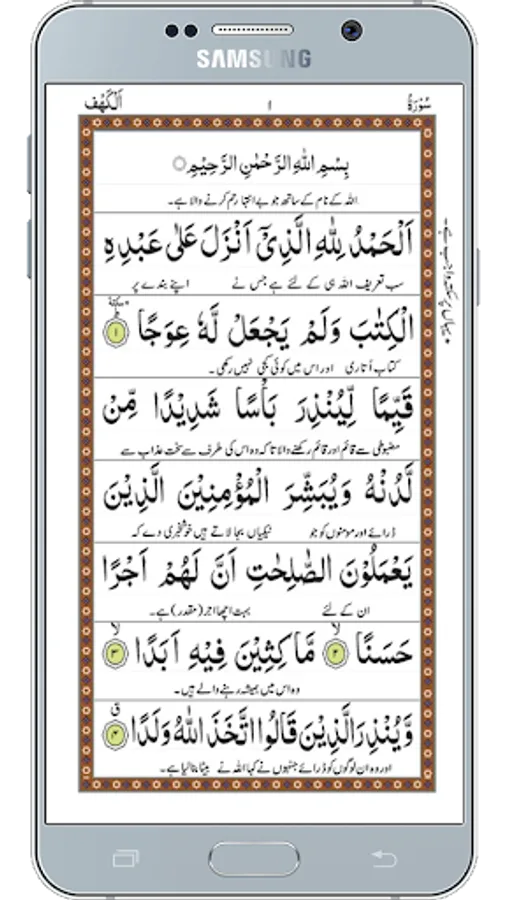 SAMSUNG
سُوْرَةُ ۱ اَلْكَهْف
بِسْمِ اللهِ الرَّحْمٰنِ الرَّحِيْمِ
اللہ کے نام کے ساتھ جو بے انتہا رحم کرنے والا ہے۔
اَلْحَمْدُ لِلّٰهِ الَّذِيْٓ اَنْزَلَ عَلٰى عَبْدِهِ
سب تعریف اللہ ہی کے لئے ہے جس نے اپنے بندے پر
الْكِتٰبَ وَلَمْ يَجْعَلْ لَّهٗ عِوَجًا ۱
کتاب اُتاری اور اس میں کوئی کجی نہیں رکھی۔
قَيِّمًا لِّيُنْذِرَ بَاْسًا شَدِيْدًا مِّنْ
مضبوطی سے قائم اور قائم رکھنے والا تاکہ وہ اس کی طرف سے سخت عذاب سے
لَّدُنْهُ وَيُبَشِّرَ الْمُؤْمِنِيْنَ الَّذِيْنَ
ڈرائے اور مؤمنوں کو جو نیکیاں بجا لاتے ہیں خوشخبری دے کہ
يَعْمَلُوْنَ الصّٰلِحٰتِ اَنَّ لَهُمْ اَجْرًا
ان کے لئے بہت اچھا اجر (مقدر) ہے۔
حَسَنًا ۲ مَّاكِثِيْنَ فِيْهِ اَبَدًا ۳
وہ اس میں ہمیشہ رہنے والے ہیں۔
وَّيُنْذِرَ الَّذِيْنَ قَالُوا اتَّخَذَ اللهُ وَلَدًا ۴
اور وہ ان لوگوں کو ڈرائے جنہوں نے کہا اللہ نے بیٹا بنا لیا ہے۔